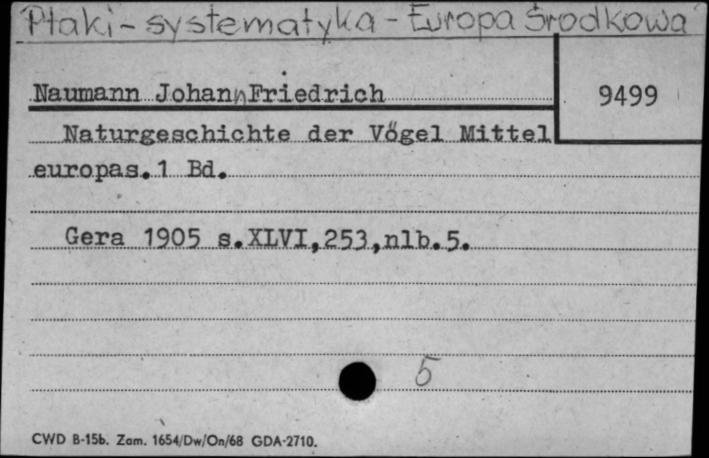 Ptaki - systematyka - Europa Środkowa
Naumann Johann Friedrich
9499
Naturgeschichte der Vögel Mittel
europas. 1 Bd.
Gera 1905 s. XLVI, 253, nlb. 5.
5
CWD B-15b. Zam. 1654/Dw/On/68 GDA-2710.